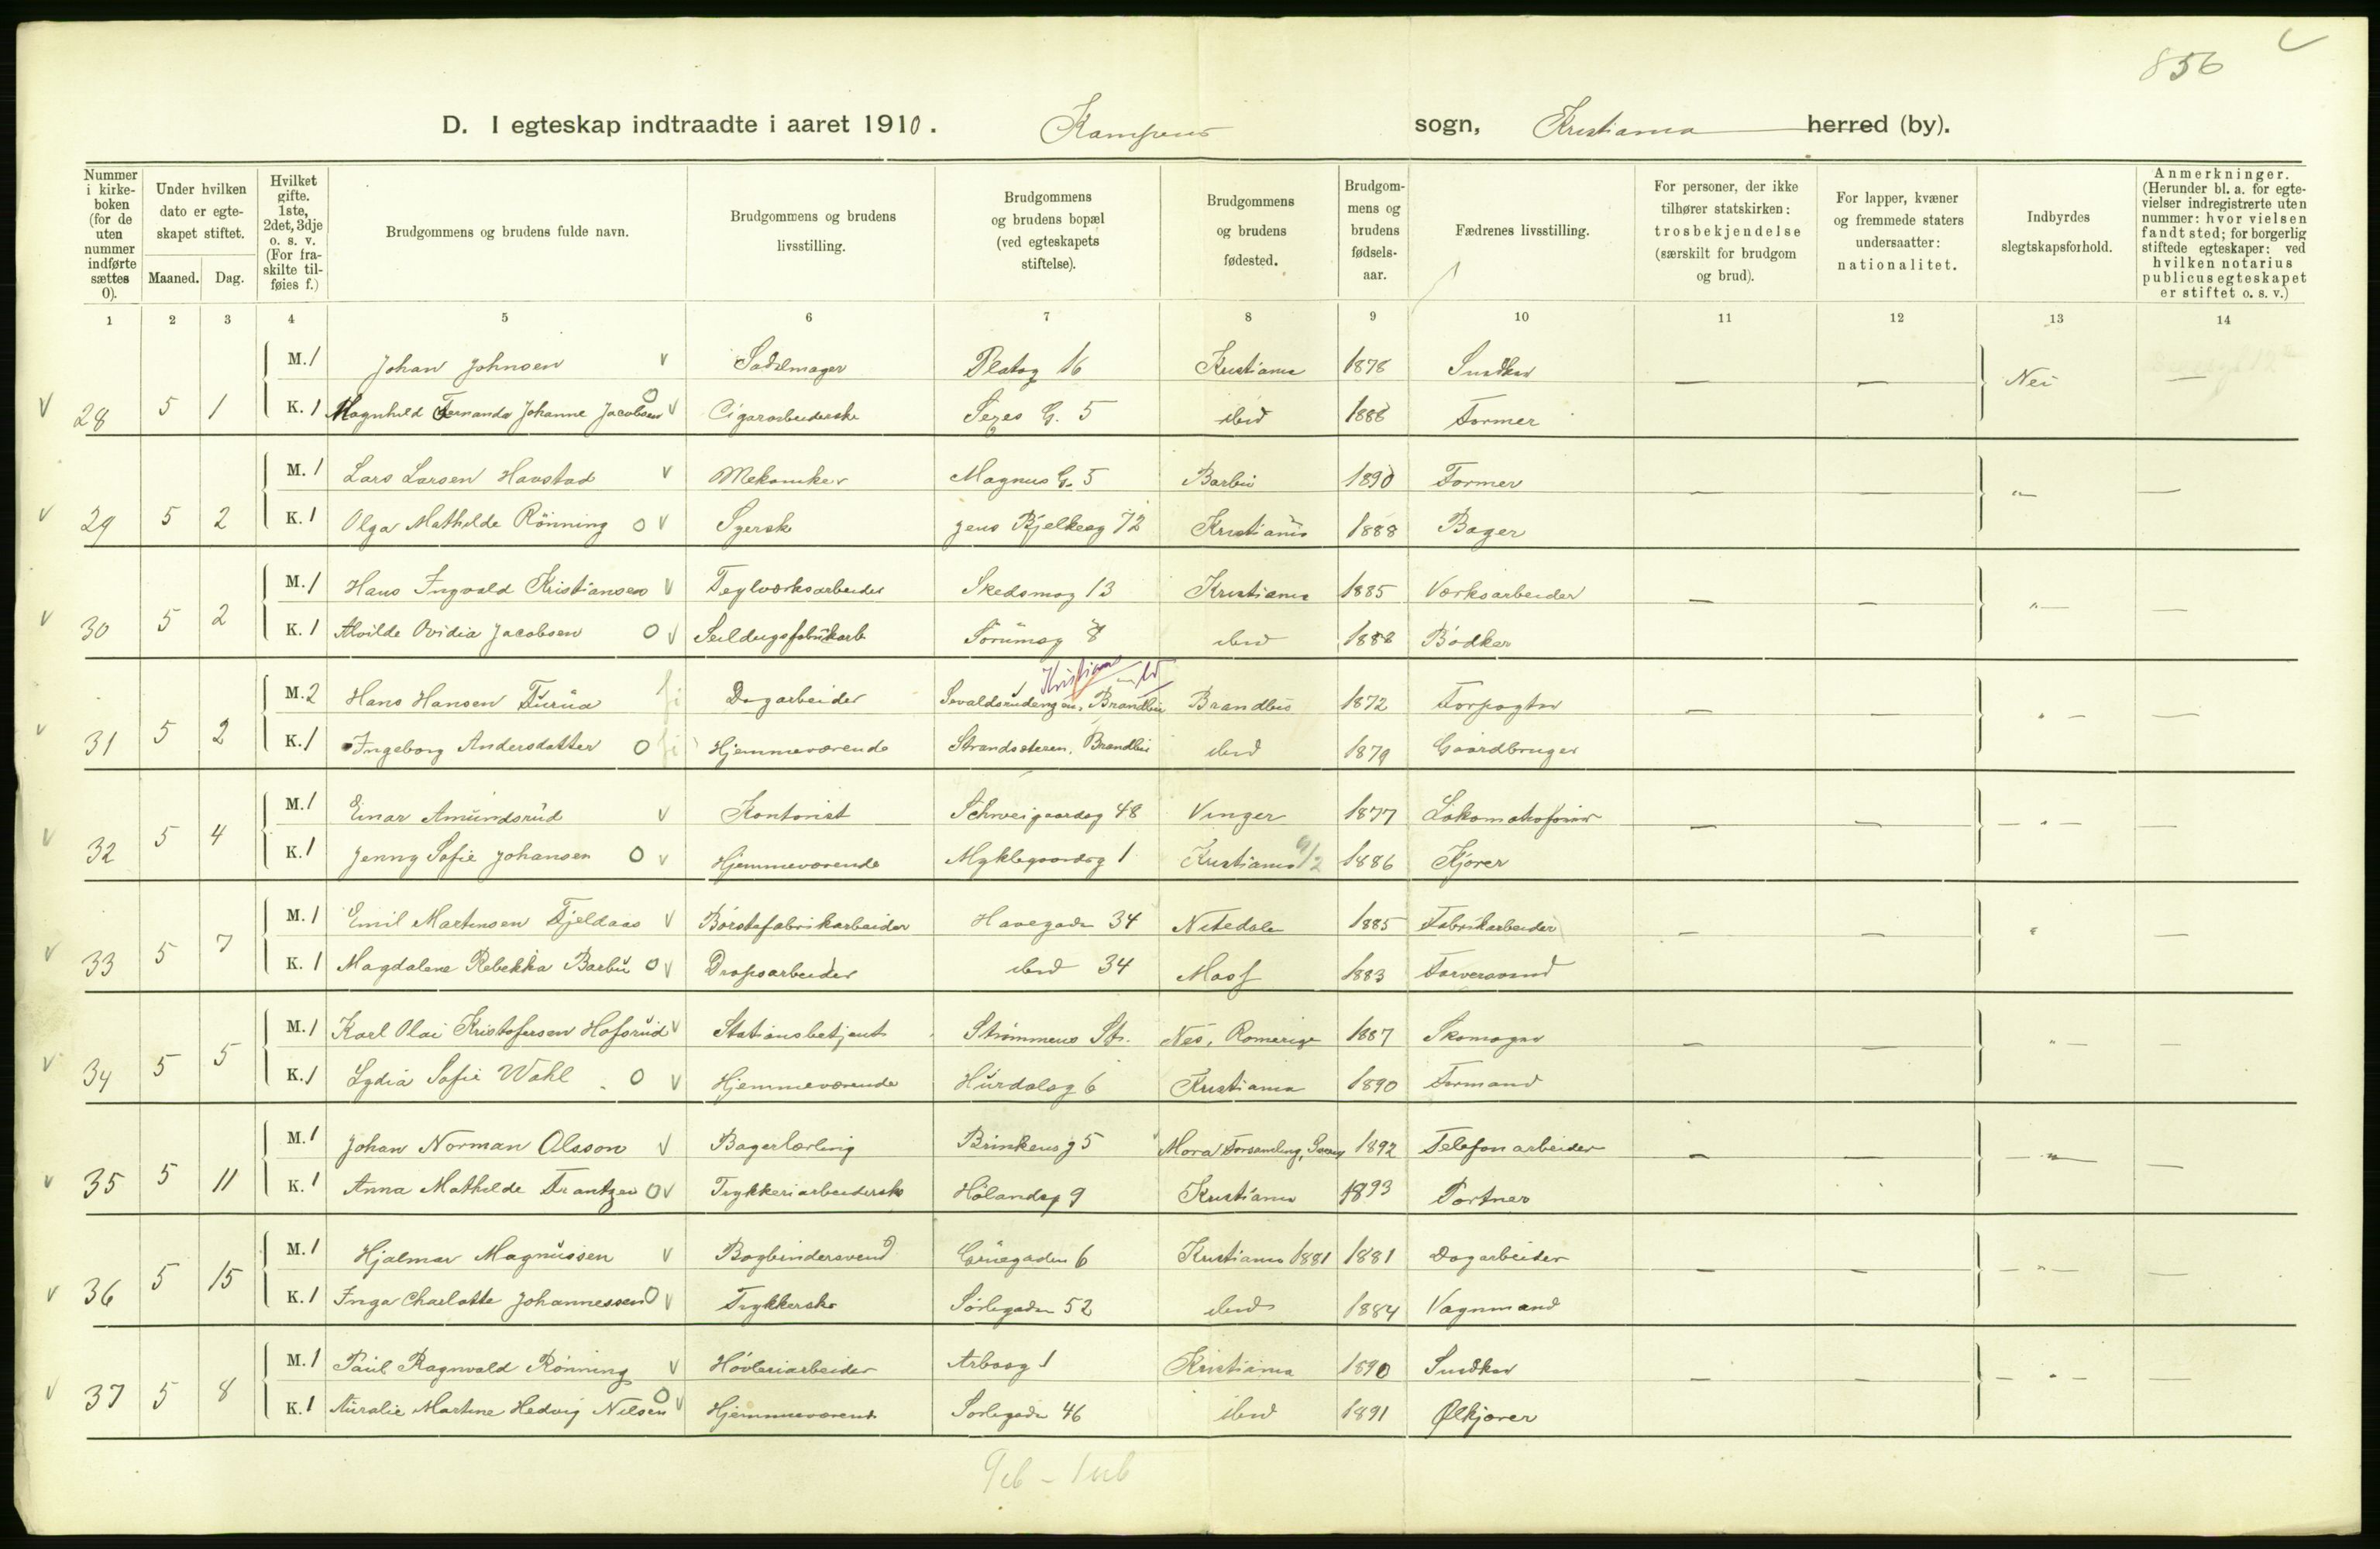 856
D. I egteskap indtraadte i aaret 1910. Kampens sogn, Kristiania herred (by).
Nummer i kirkeboken (for de uten nummer indførte sættes 0).
Under hvilken dato er egteskapet stiftet.
Maaned. Dag.
Hvilket gifte. 1ste, 2det, 3dje o. s. v. (For fraskilte tilføies f.)
Brudgommens og brudens fulde navn.
Brudgommens og brudens livsstilling.
Brudgommens og brudens bopæl (ved egteskapets stiftelse).
Brudgommens og brudens fødested.
Brudgommens og brudens fødselsaar.
Fædrenes livsstilling.
For personer, der ikke tilhører statskirken: trosbekjendelse (særskilt for brudgom og brud).
For lapper, kvæner og fremmede staters undersaatter: nationalitet.
Indbyrdes slegtskapsforhold.
Anmerkninger. (Herunder bl. a. for egtevielser indregistrerte uten nummer: hvor vielsen fandt sted; for borgerlig stiftede egteskaper: ved hvilken notarius publicus egteskapet er stiftet o. s. v.)
1 2 3 4 5 6 7 8 9 10 11 12 13 14
M. 1 Johan Johnsen v Sadelmager Platog 16 Kristiania 1878 Snedker — — Nei —
v 28 5 1 K. 1 Magnhild Fernanda Johanne Jacobsen O v Cigararbeiderske G. 5 ibid 1888 Former
M. 1 Lars Larsen Havstad v Mekaniker Magnus G. 5 Barbu 1890 Former — — " —
v 29 5 2 K. 1 Olga Mathilde Rönning O v Syerske Jens Bjelkesg 72 Kristiania 1888 Bager
M. 1 Hans Ingvald Kristiansen v Teglværksarbeider Skedsmog 13 Kristiania 1885 Værksarbeider — — " —
v 30 5 2 K. 1 Alvilde Ovidia Jacobsen O v Seildugsfabrikarb Sørumsg 8 ibid 1888 Bødker
Kristiania
M. 2 Hans Hansen Furua Dagarbeider Brandbu Brandbu 1872 Forpagter — — " —
v 31 5 2 K. 1 Ingeborg Andersdatter O Hjemmeværende Brandbu ibid 1879 Gaardbruger
M. 1 Einar Amundsrud v Kontorist Schweigaardsg 48 Vinger 1877 — — " —
v 32 5 4 K. 1 Jenny Sofie Johansen O v Hjemmeværende Myklegaardsg 1 Kristiania 1886 Kjører
M. 1 Emil Martinsen Fjeldaas v Børstefabrikarbeider Havegaden 34 Nitedalen 1885 Fabrikarbeider — — " —
v 33 5 7 K. 1 Magdalene Rebekka Barbu O v Dropsarbeider ibid 34 Moss 1883 Farversvend
M. 1 Karl Olai Kristofersen Hofsrud v Stationsbetjent Strømmens St. Nes, Romerige 1887 Skomager — — " —
v 34 5 5 K. 1 Lydia Sofie Wahl O v Hjemmeværende Hurdalsg 6 Kristiania 1890 Formand
M. 1 Johan Norman Olsson v Bagerlærling Brinkensg 5 Mora Forsamling, 1892 Telefonarbeider — — " —
v 35 5 11 K. 1 Anna Mathilde Frantzen O v Trykkeriarbeiderske Hølandsg 9 Kristiania 1893 Portner
M. 1 Hjalmar Magnussen v Bogbindersvend Grüegaden 6 Kristiania 1881 1881 Dagarbeider — — " —
v 36 5 15 K. 1 Inga Charlotte Johannessen O v Trykkerske Sørligaden 52 ibid 1884 Vognmand
M. 1 Paul Ragnvald Rønning v Høvleriarbeider Arbosg 1 Kristiania 1890 Snedker — — " —
v 37 5 8 K. 1 Auralie Martine Hedvig Nilsen O v Hjemmeværende Sørligaden 46 ibid 1891 Ølkjører